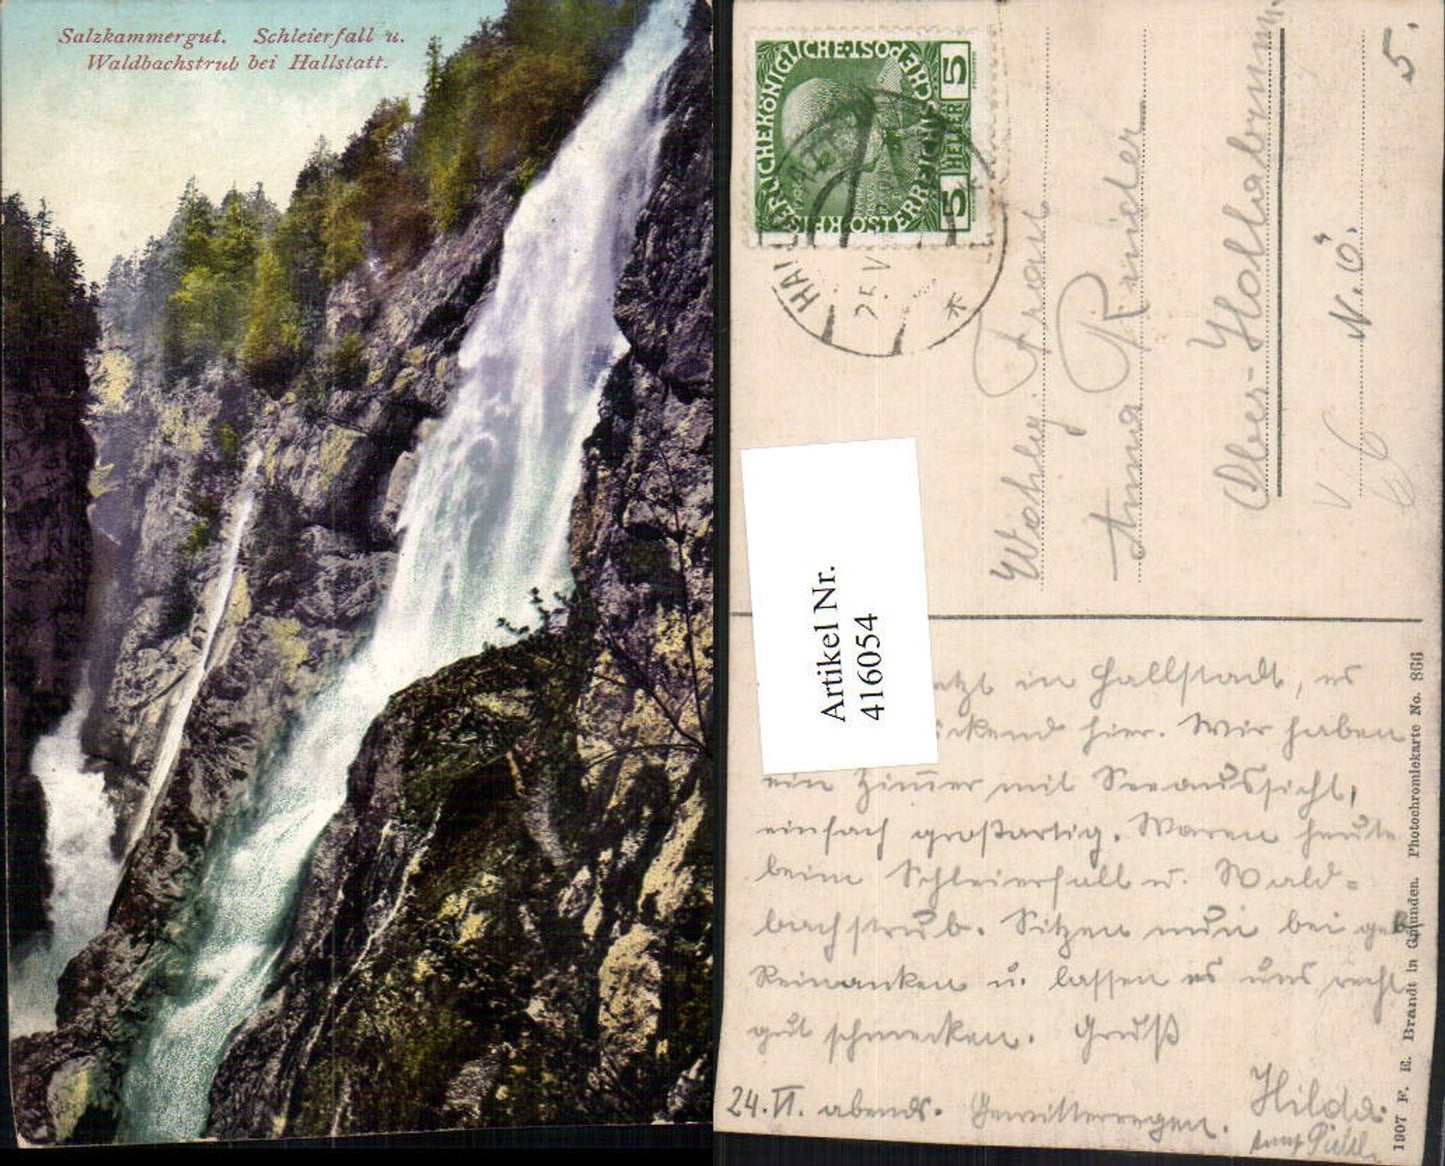 Salzkammergut. Schleierfall u.
Waldbachstrub bei Hallstatt.
KAISERLICHE KÖNIGLICHE ÖSTERREICHISCHE POST
5 HELLER 5
HALL
25. V
Wohlg. Frau
Anna
Ober-Hollabrunn
N.Ö.
5.
Artikel Nr.
416054
in Hallstadt, es
hier. Wir haben
ein Zimmer mit Seeaussicht,
einfach großartig. Waren heute
beim Schleierfall u. Wald=
bachstrub. Sitzen nun bei geb
Reinanken u. lassen es uns recht
gut schmecken. Gruß
Hilda.
24. VI. abends. Gewitterregen.
1907 F. E. Brandt in Gmunden. Photochromiekarte No. 866